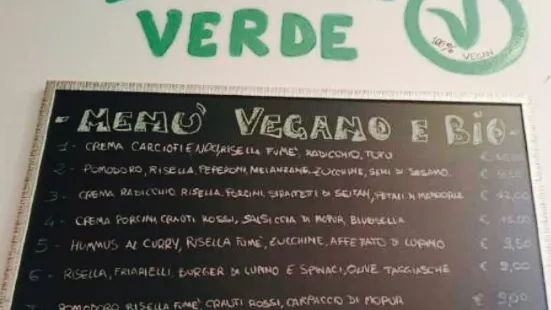 VERDE
100% VEGAN
- MENÙ VEGANO E BIO -
1 - CREMA CARCIOFI E NOCI, RISELLA FUMÈ, RADICCHIO, TOFU €
2 - POMODORO, RISELLA, PEPERONI, MELANZANE, ZUCCHINE, SEMI DI SESAMO €
3 - CREMA RADICCHIO RISELLA, PORCINI, STRACCETTI DI SEITAN, PETALI DI MANDORLE €
4 - CREMA PORCINI, CRAUTI ROSSI, SALSICCIA DI MOPUR, BLUESELLA €
5 - HUMMUS AL CURRY, RISELLA FUMÈ, ZUCCHINE, AFFETTATO DI LUPINO € 9,50
6 - RISELLA, FRIARIELLI, BURGER DI LUPINO E SPINACI, OLIVE TAGGIASCHE € 9,00
7 POMODORO RISELLA FUMÈ, CRAUTI ROSSI, CARPACCIO DI MOPUR € 9,00